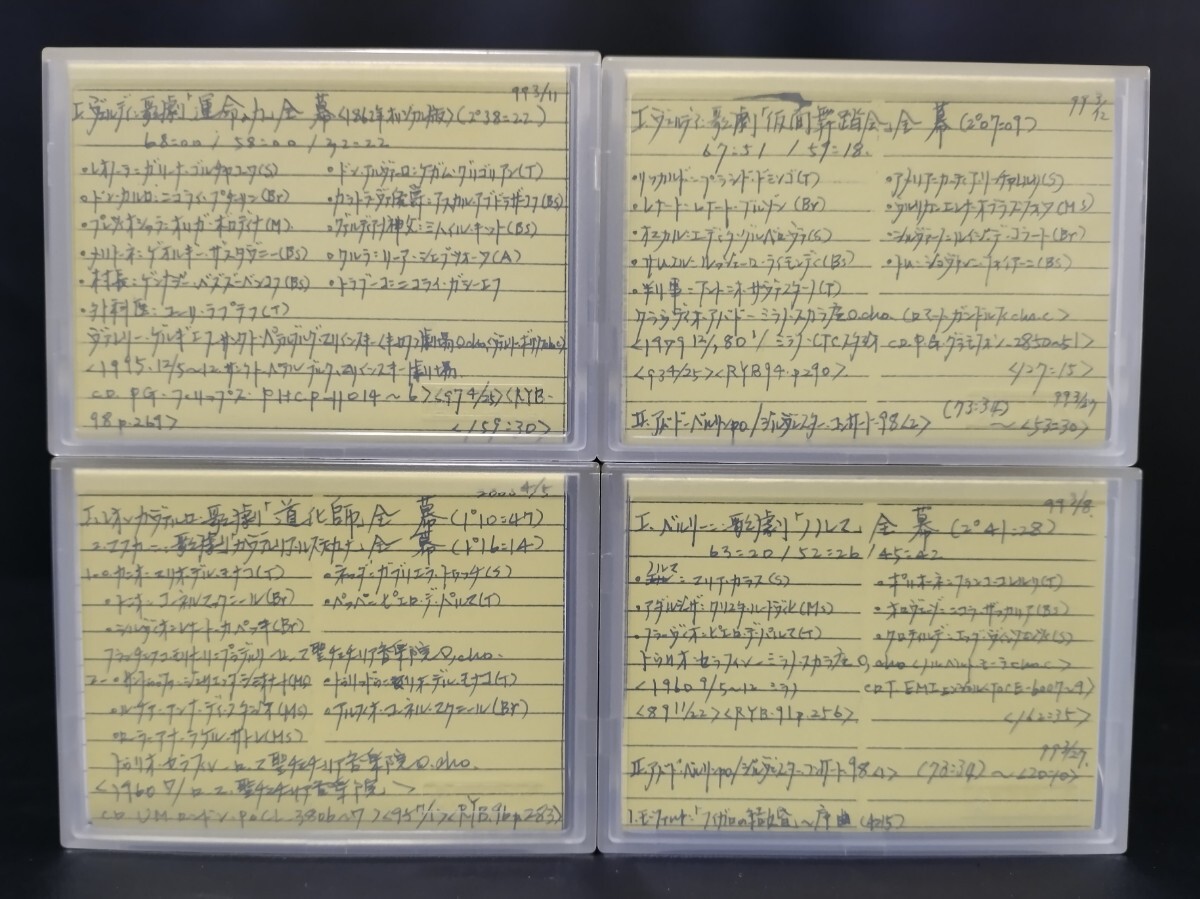 99 3/11
I. ヴェルディ・歌劇「運命の力」全幕〈1862年オリジナル版〉(2°38=22)
68=00 / 58=00 / 32=22
・レオノーラ=ガリーナ・ゴルチャコワ(S) ・ドン・アルヴァーロ=ゲガム・グリゴリアン(T)
・ドン・カルロ=ニコライ・プチーリン(Br) ・カラトラヴァ侯爵=アスカル・アブドラザコフ(Bs)
・プレツィオシッラ=オリガ・ボロディナ(M) ・グァルディアーノ神父=ミハイル・キット(Bs)
・メリトーネ=ゲオルギー・ザスタヴニー(Bs) ・クルラ=リーア・シェフツォーワ(A)
・村長=ゲンナジー・ベズズベンコフ(Bs) ・トラブーコ=ニコライ・ガシーエフ
・外科医=ユーリ・ラプテフ(T)
ヴァレリー・ゲルギエフ サンクト・ペテルブルグ・マリインスキー(キーロフ)劇場O,cho.
〈1995.12/5~12 サンクト・ペテルブルク、マリインスキー劇場
CD. PG. フィリップス PHCP-11014~6〉〈97 4/25〉〈RYB.
98 p.269〉 〈159=30〉
99 3/12
I. ヴェルディ・歌劇「仮面舞踏会」全幕(2°07=09)
67=51 / 59=18.
・リッカルド=プラシド・ドミンゴ(T) ・アメリア=カーティア・リッチャレッリ(S)
・レナート=レナート・ブルゾン(Br) ・ウルリカ=エレナ・オブラスツォワ(MS)
・オスカル=エディタ・グルベローヴァ(S) ・シルヴァーノ=ルイジ・デ・コラート(Br)
・サムエル=ルッジェーロ・ライモンディ(Bs) ・トム=ジョヴァンニ・フォイアーニ(Bs)
・判事=アントニオ・サヴァスターノ(T)
クラウディオ・アバド-ミラノ・スカラ座O,cho. (ロマーノ・ガンドルフィcho.c)
〈1979 12/, 80 1/ ミラノ・CTCスタジオ CD. P.G. グラモフォン-2850~51〉
〈93 4/25〉〈RYB 94. p290〉. 〈127=15〉
99 3/27
II. アバド-ベルリンpo / ジルヴェスター・コンサート98〈2〉 (73:34) ~〈53=30〉
2000 4/5
I. 1. レオンカヴァルロ・歌劇「道化師」全幕(1°10=47)
2. マスカーニ・歌劇「カヴァレリア・ルスティカーナ」全幕(1°16=14)
1.・カニオ=マリオ・デル・モナコ(T) ・ネッダ=ガブリエラ・トゥッチ(S)
・トニオ=コーネル・マックニール(Br) ・ペッペ=ピエロ・デ・パルマ(T)
・シルヴィオ=レナート・カペッキ(Br)
フランチェスコ・モリナーリ=プラデルリ-ローマ聖チェチーリア音楽院O,cho.
2.・サントゥッツァ=ジュリエッタ・シミオナート(MS) ・トゥリッドゥ=マリオ・デル・モナコ(T)
・ルチア=アンナ・ディ・スタジオ(MS) ・アルフィオ=コーネル・マクニール(Br)
・ローラ=アナ・ラケル・サトレ(MS)
トゥリオ・セラフィン-ローマ聖チェチーリア音楽院O,cho.
〈1960 7/ ローマ、聖チェチーリア音楽院〉
CD. UM. ロンドン. POCL-3806~7〉〈95 7/1〉〈RYB. 96 p.283〉
99 3/8.
I. ベルリーニ・歌劇「ノルマ」全幕(2°41=28)
63=20 / 52=26 / 45=42
・ノルマ=マリア・カラス(S) ・ポリオーネ=フランコ・コレルリ(T)
・アダルジーザ=クリスタ・ルートヴィヒ(MS) ・オロヴェーゾ=ニコラ・ザッカリア(Bs)
・フラーヴィオ=ピエロ・デ・パルマ(T) ・クロチルデ=エッダ・ヴィンチェンツィ(S)
トゥリオ・セラフィン-ミラノ・スカラ座O,cho (ノルベルト・モーラcho.c)
〈1960 9/5~12 ミラノ CD T.EMI エンジェル〈TOCE-6007~9〉
〈89 11/22〉〈RYB. 91 p.256〉 〈162=35〉
99 3/27.
II. アバド-ベルリンpo / ジルヴェスター・コンサート98〈1〉 (73:34) ~〈20=10〉
1. モーツァルト・「フィガロの結婚」~序曲(4=15)